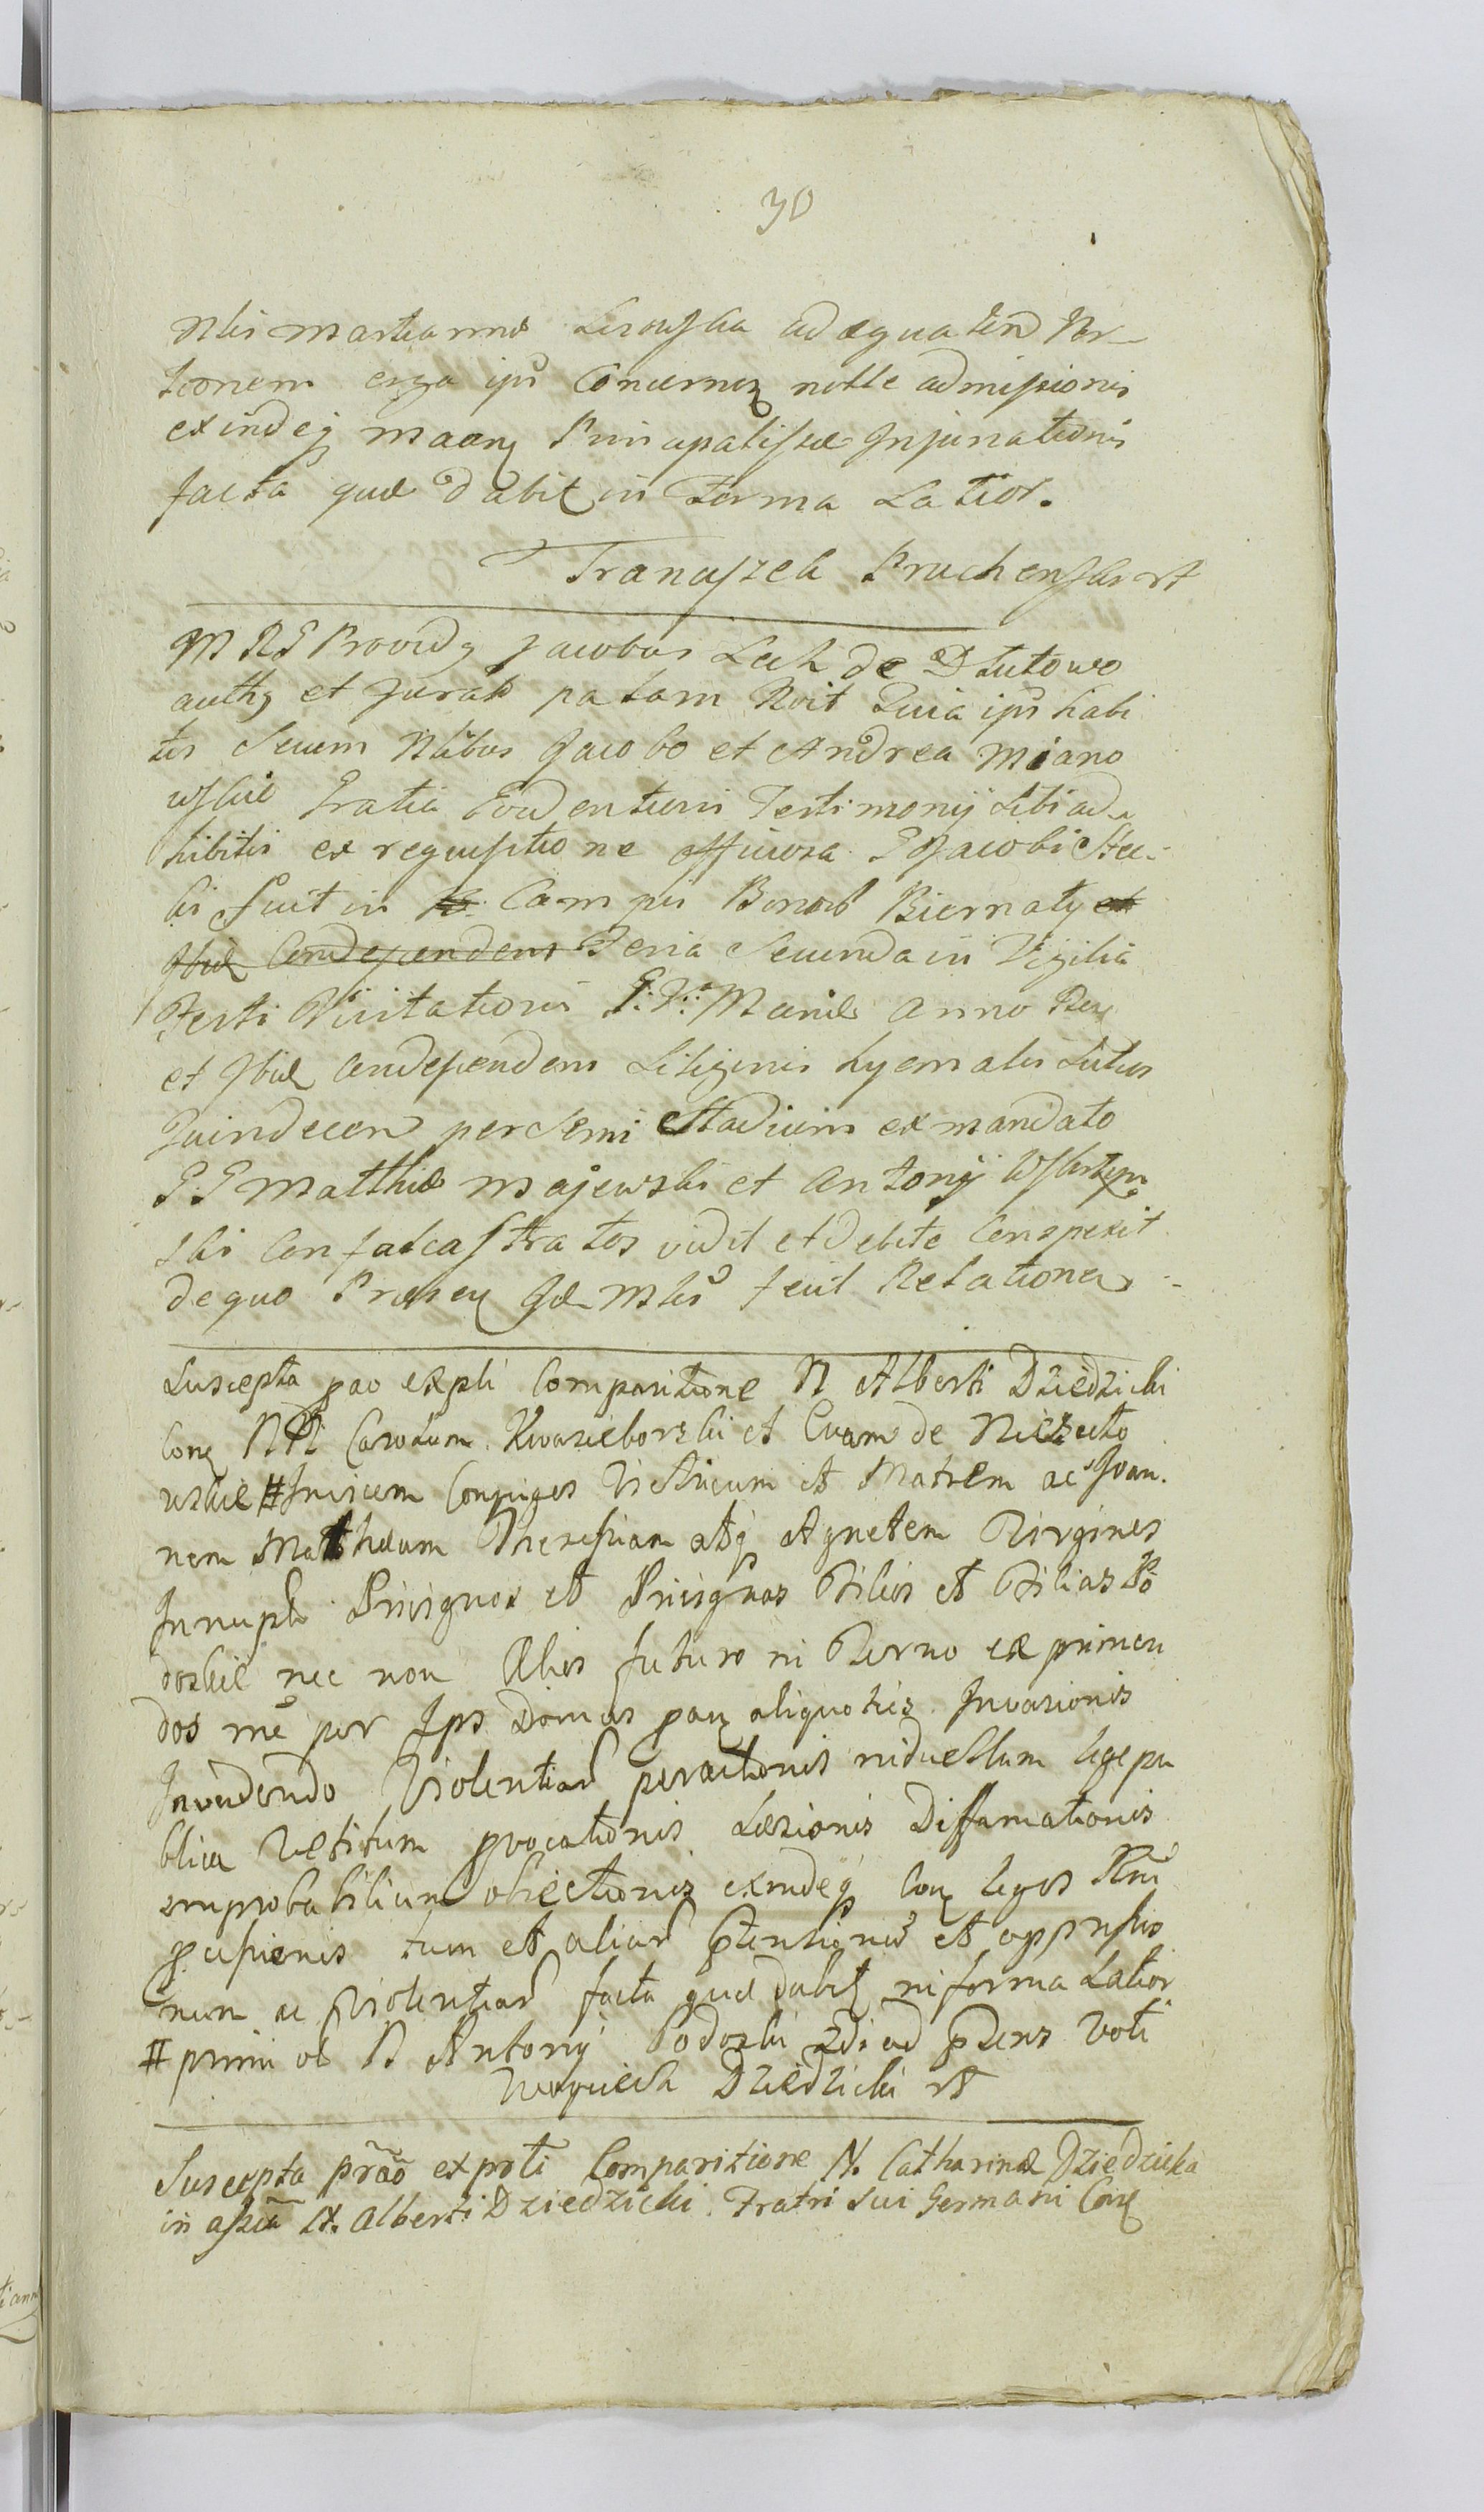 30
Nlis Martianne Lisowska adæquatem Por-
tionem erga ips Concernen nolle admissionis
exindeq maan Principalistæ Injurationis
facta quæ dabit in forma Latior.
Franciszek Pruchenski rt
M R G Providg Jacobus Lech de Dlutowo
authg et Jurats palam Roit Quia ips habi
tis Secum Nlibus Jacobo et Andrea Miano
wskie Gratia Evidentioris Testimonij Sibi ad
hibitis ex requisitione officiosa G Jacobi
ski fuit in Campis Bonorb Biernaty et
Ibiq Condependens Feria Secunda in Vigilia
Festi Visitationis B. V. Mariæ Anno Rex
et Ibiq condependens Siliginis hyemalis Lutus
Quindecem per Semi Stadium ex mandato
G G Matthiæ Majewski et Antonij
ski Confalcastratos vidit et debite Conspexit
de quo Præsen Idē Mlis fecit Relationem
Suscepta pao expli Comparitione N Alberti Dziedzicki
Conq N N Carolum Kwasieborski et Evam de Niezecto
wskie # Invicem Conjuges Victricum et Matrem ac Joan.
nem Matthæum Theressiam atq Agnetem Virgines
Innupts Privignos et Privignas Filios et Filias Po
doskie nec non Alios futuro in Termo exprimen
dos mē per Ips Domus pau aliquoties Invasionis
Invadendo Violentiar peractionis in duellum lege pu
blica Vetitum pvocationis Læsionis Diffamationis
improbabilium obiectionis exindeq Con leges Rni
pcussionis tum et aliar ptensionū et oppressio
num ac Violentiar facta quæ dabit in forma Latior
# primi ol N Antonij Podoski 2di ad pdens Voti
Woyciech Dziedzicki rt
Suscepta prāo exprti Comparitione N. Catharinæ Dziedzicka
in assia N. Alberti Dziedzicki. Fratri sui Germani Conq